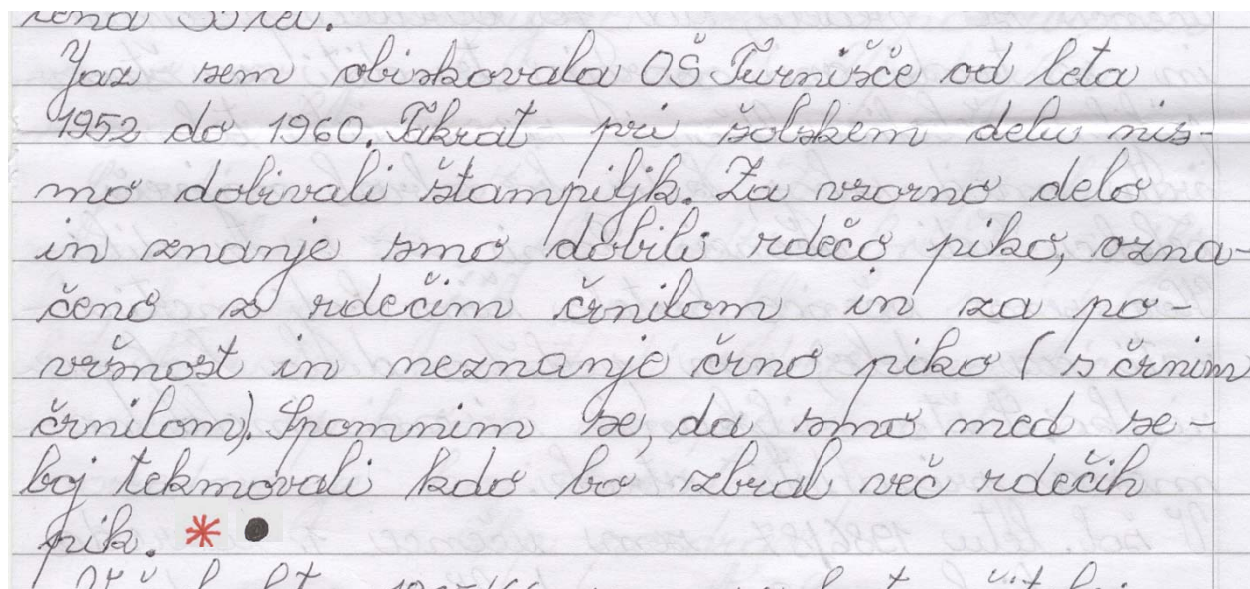 Jaz sem obiskovala OŠ Turnišče od leta
1952 do 1960. Takrat pri šolskem delu nis-
mo dobivali štampiljk. Za vzorno delo
in znanje smo dobili rdečo piko, ozna-
čeno z rdečim črnilom in za po-
vršnost in neznanje črno piko (s črnim
črnilom). Spomnim se, da smo med se-
boj tekmovali kdo bo zbral več rdečih
pik.